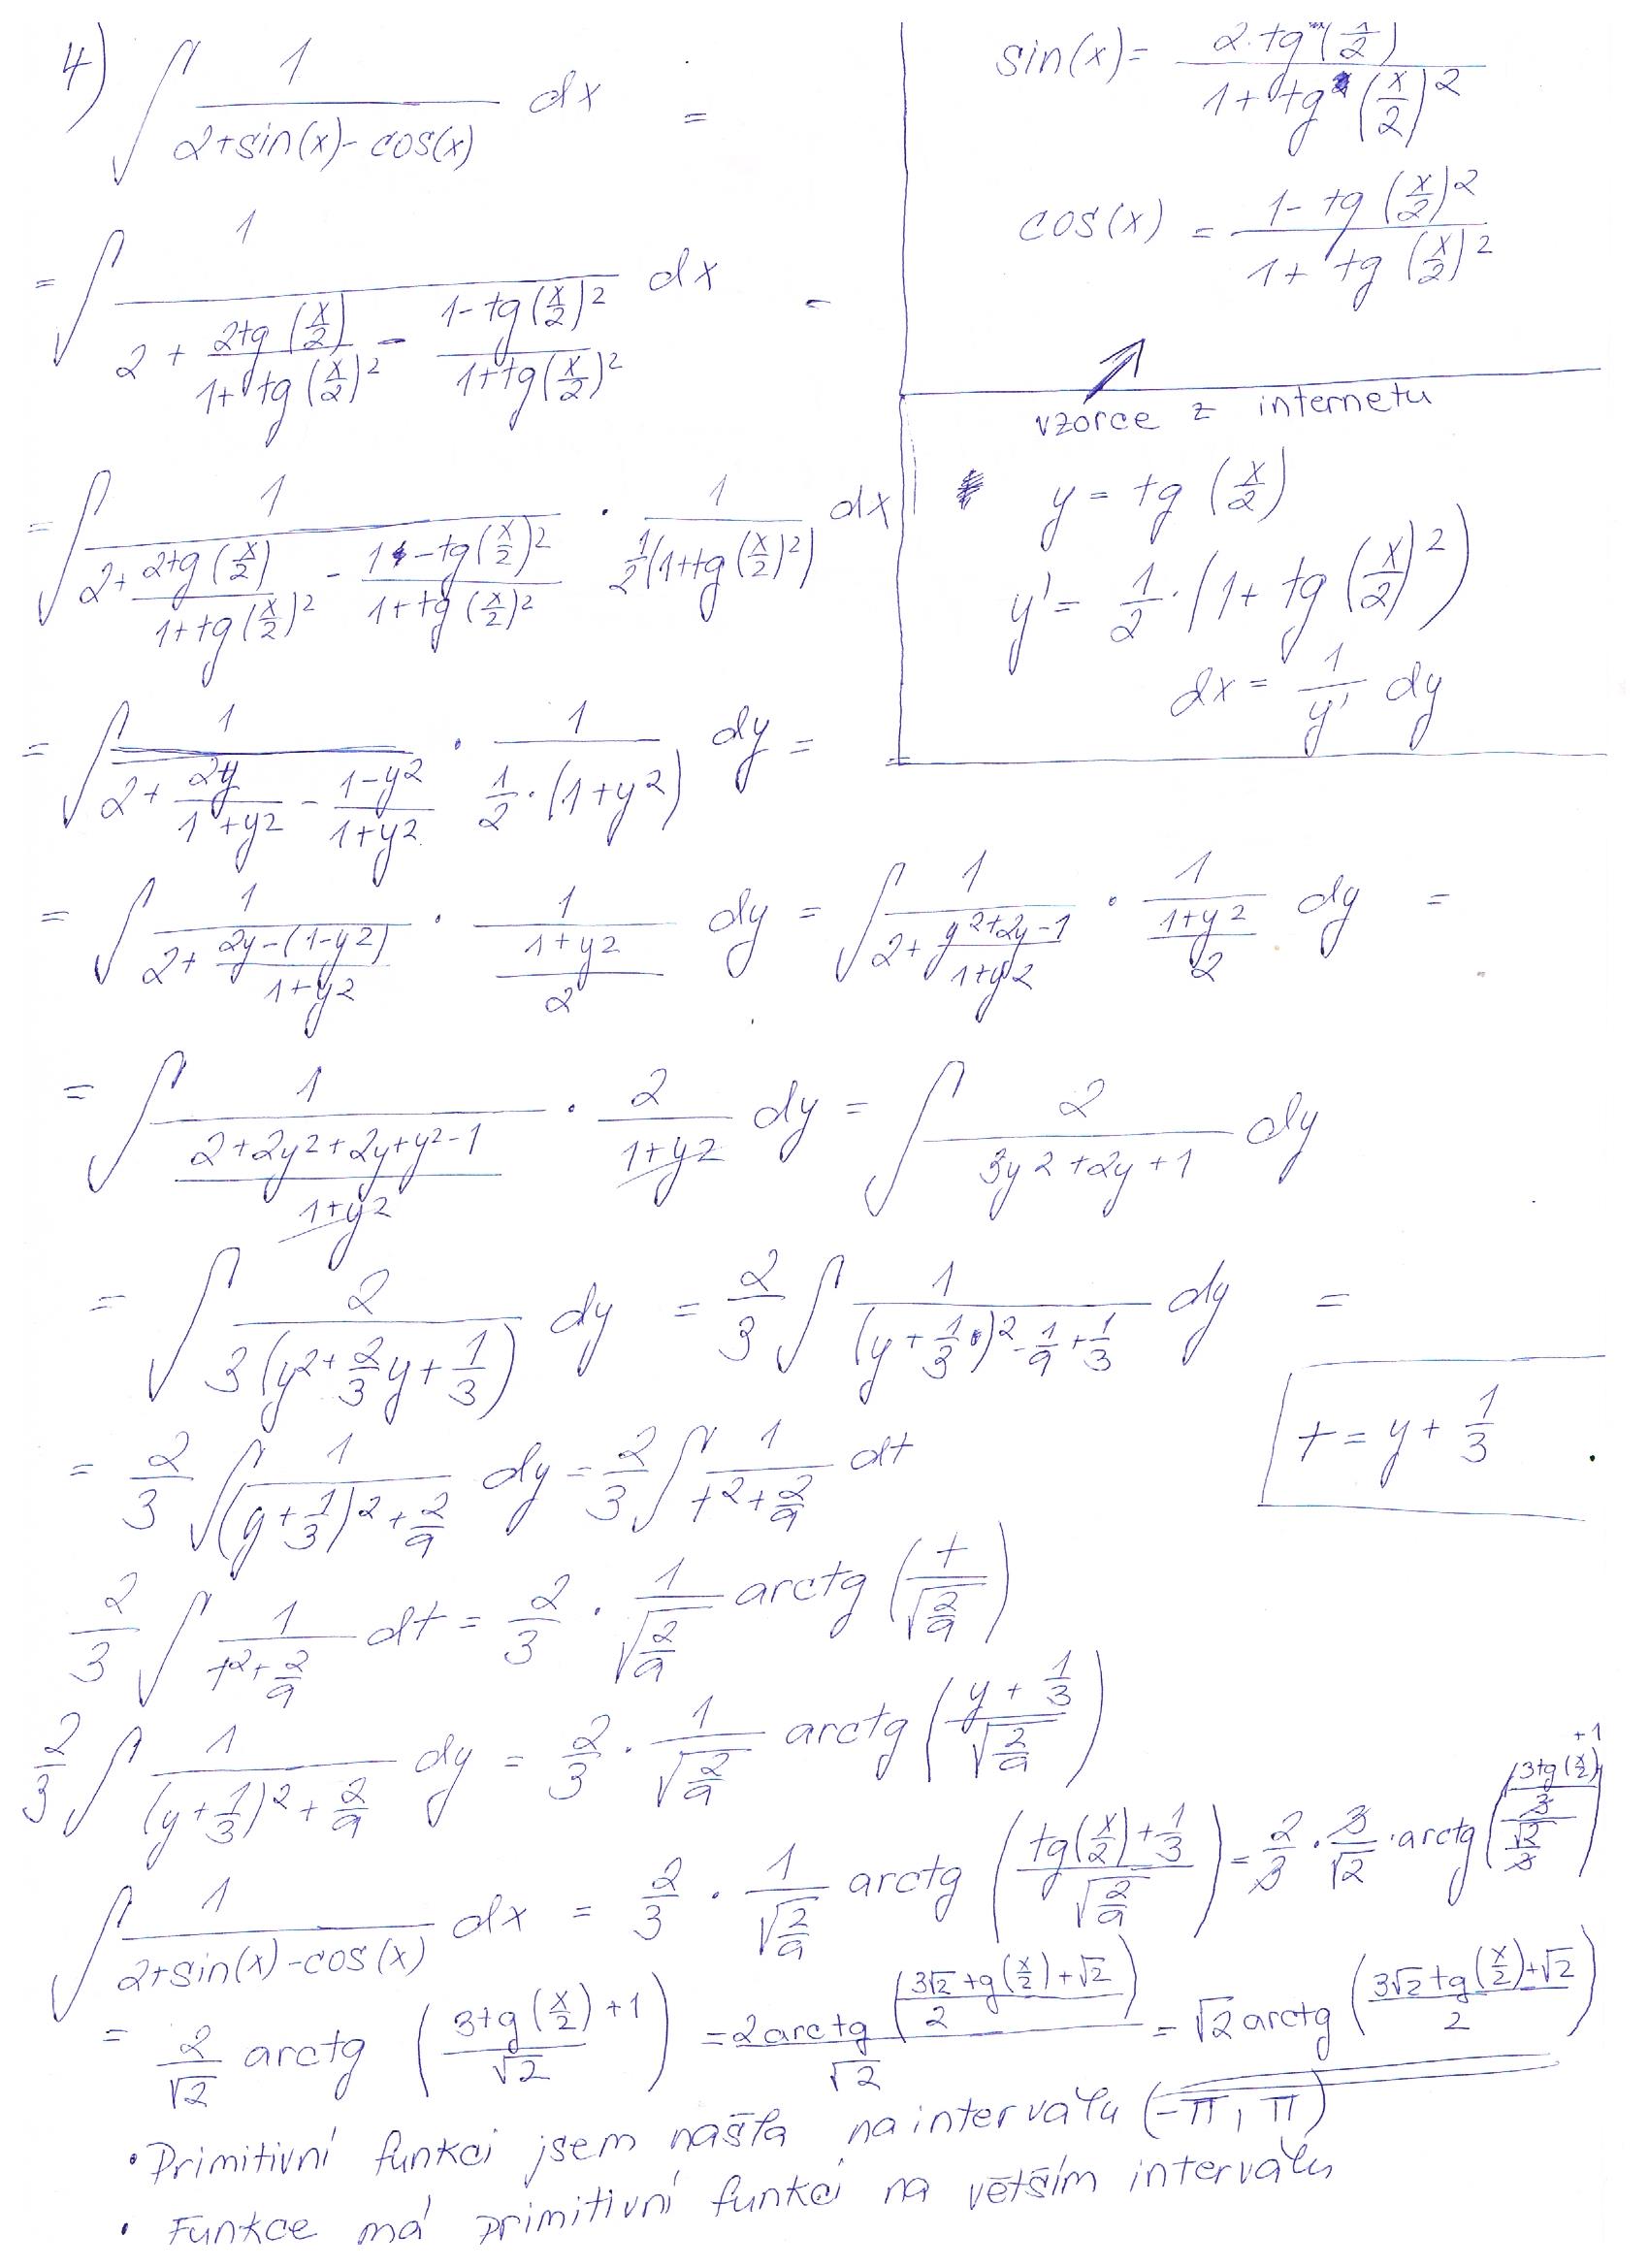 4) ∫ 1/(2+sin(x)-cos(x)) dx =
sin(x) = (2·tg(x/2))/(1+tg(x/2)²)
cos(x) = (1-tg(x/2)²)/(1+tg(x/2)²)
vzorce z internetu
= ∫ 1/(2 + (2tg(x/2))/(1+tg(x/2)²) - (1-tg(x/2)²)/(1+tg(x/2)²)) dx =
= ∫ 1/(2+ (2tg(x/2))/(1+tg(x/2)²) - (1-tg(x/2)²)/(1+tg(x/2)²)) · 1/(½(1+tg(x/2)²)) dx
y = tg(x/2)
y' = 1/2 · (1+tg(x/2)²)
dx = 1/y' dy
= ∫ 1/(2+ 2y/(1+y²) - (1-y²)/(1+y²)) · 1/(1/2·(1+y²)) dy =
= ∫ 1/(2+ (2y-(1-y²))/(1+y²)) · 1/((1+y²)/2) dy = ∫ 1/(2+ (y²+2y-1)/(1+y²)) · 1/((1+y²)/2) dy =
= ∫ 1/((2+2y²+2y+y²-1)/(1+y²)) · 2/(1+y²) dy = ∫ 2/(3y²+2y+1) dy
= ∫ 2/(3(y²+2/3y+1/3)) dy = 2/3 ∫ 1/((y+1/3)²-1/9+1/3) dy =
t = y+1/3
= 2/3 ∫ 1/((y+1/3)²+2/9) dy = 2/3 ∫ 1/(t²+2/9) dt
2/3 ∫ 1/(t²+2/9) dt = 2/3 · 1/√(2/9) arctg(t/√(2/9))
2/3 ∫ 1/((y+1/3)²+2/9) dy = 2/3 · 1/√(2/9) arctg((y+1/3)/√(2/9))
∫ 1/(2+sin(x)-cos(x)) dx = 2/3 · 1/√(2/9) arctg((tg(x/2)+1/3)/√(2/9)) = 2/3 · 3/√2 · arctg(((3tg(x/2)+1)/3)/(√2/3))
= 2/√2 arctg((3tg(x/2)+1)/√2) = (2arctg((3√2tg(x/2)+√2)/2))/√2 = √2 arctg((3√2tg(x/2)+√2)/2)
• Primitivní funkci jsem našla na intervalu (-π, π)
• Funkce má primitivní funkci na větším intervalu